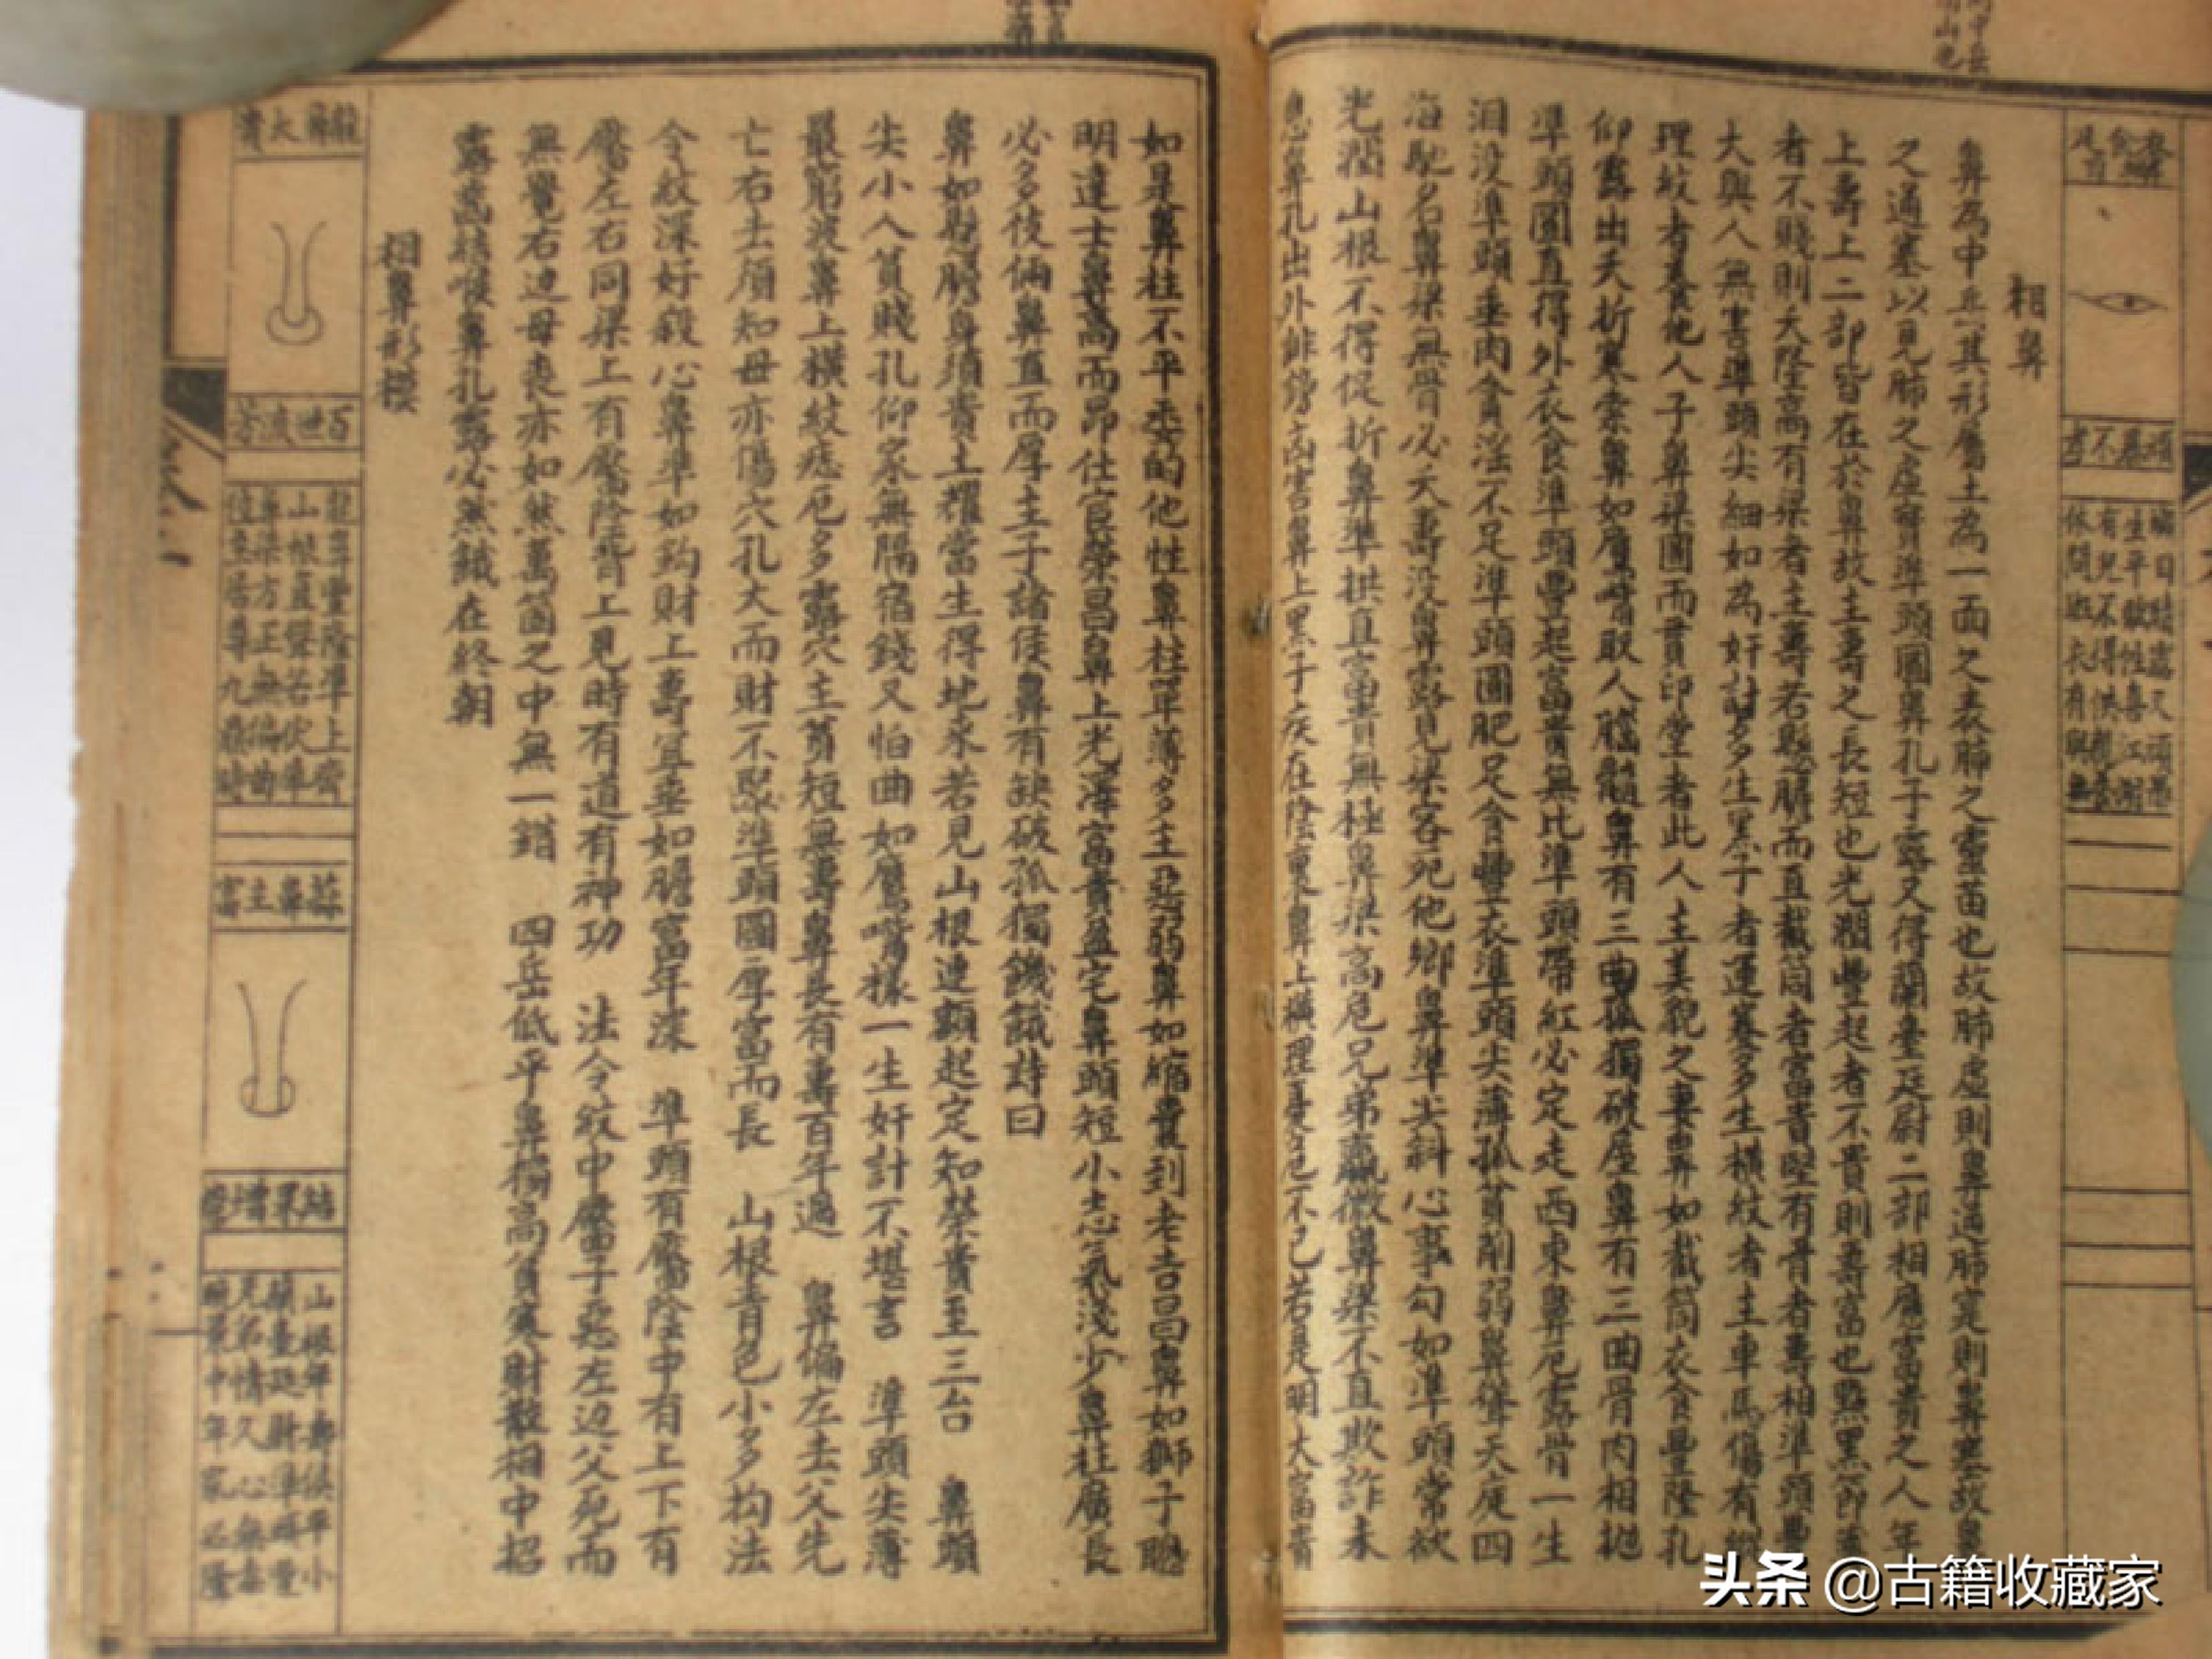 相鼻
鼻為中岳其形屬土為一面之表肺之靈苗也故肺虛則鼻通肺寔則鼻塞故鼻
之通塞以見肺之虛實準頭圓鼻孔子露又得蘭臺廷尉二部相應富貴之人年
上壽上二部皆在於鼻故主壽之長短也光潤豐起者不貴則壽富也點黑節
者不賤則夭隆高有梁者主壽若懸膽而直截筒者富貴堅有骨者壽相準頭豊
大與人無害準頭尖細如為奸計多生黑子者運蹇多生橫紋者主車馬傷有
理紋者養他人子鼻梁圓而貫印堂者此人主美貌之妻鼻如截筒衣食豊隆孔
仰露出夭折寒索鼻如鷹嘴取人腦髓鼻有三曲孤獨破屋鼻有三凹骨肉相抛
準頭圓直得外衣食準頭豊起富貴無比準頭帶紅必定走西東鼻厄露骨一生
汩没準頭垂肉貪淫不足準頭圓肥足食豐衣準頭尖薄孤貧削弱鼻聳天庭四
海馳名鼻梁無骨必夭壽没鼻露見梁客死他鄉鼻準尖斜心事勾如準頭常欲
光潤山根不得促折鼻準拱直富貴無極鼻梁高厄兄弟羸微鼻梁不直欺詐未
息鼻孔出外誹謗凶害鼻上黑子疾在陰裏鼻上横理憂危不已若是明大富貴
如是鼻柱不平委的他性鼻柱单薄多主惡弱鼻如縮囊到老吉昌鼻如獅子聰
明達士鼻高而昂仕官榮昌鼻上光澤富貴盈宅鼻頭短小志氣淺少鼻柱廣長
必多伎倆鼻直而厚主子諸侯鼻有缺破孤獨饑餓詩曰
鼻如懸膽身須貴土耀當生得地來若見山根連額起定知榮貴至三台　鼻頭
尖小人貧賤孔仰家無隔宿錢又怕曲如鷹嘴樣一生奸計不堪言　準頭尖薄
最窮波鼻上橫紋痣厄多露穴主貧短無壽鼻長有壽百年過　鼻偏左去父先
亡右去須知母亦傷穴孔大而財不聚準頭圓厚富而長　山根青色小多杓法
令紋深好殺心鼻準如鈎財上壽宜垂如膽富年深　準頭有黶陰中有上下有
黶左右同梁上有黶陰背上見時有道有神功　法令紋中黶子惡左辺父死而
無覺右辺母喪亦如然萬箇之中無一錯　四岳低平鼻獨高貧寒財散相中招
露齒結喉鼻孔露必然餓在終朝
相鼻形模
龍鼻大貴
百世流芳
龍鼻豊隆準上齊
山根直聳若伏犀
鼻梁方正無偏曲
位至居尊九鼎時
蒜鼻主富
結果增榮
山根年壽俱平小
蘭臺廷尉準頭豐
兄弟情欠心無毒
晚景中年家必隆
頭條 @古籍收藏家